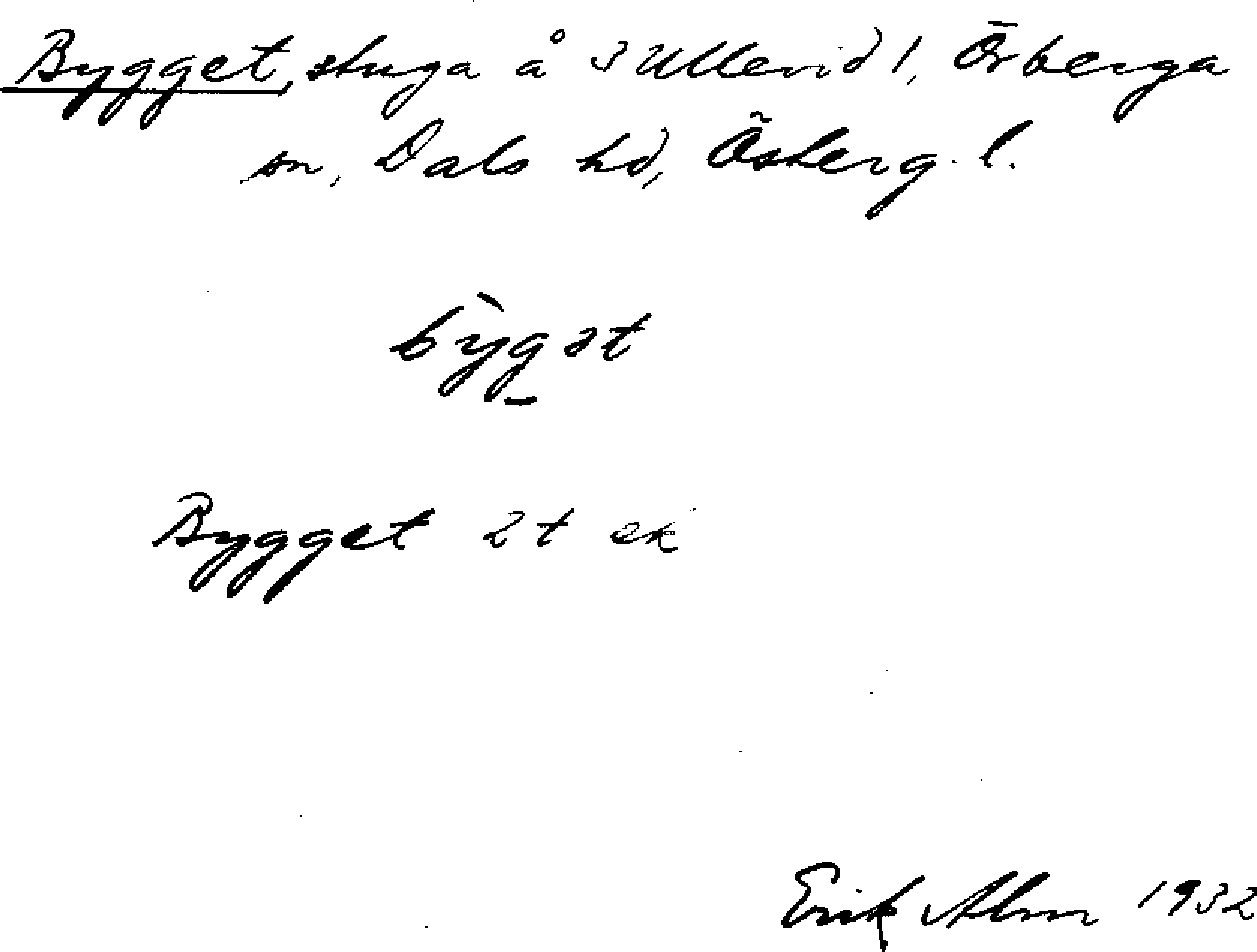 Bygget, stuga å 3 Ullevid 1, Örberga
sn, Dals hd, Österg. l.
bỳg̱ət
Bygget 2t ek
Erik Alm 1932